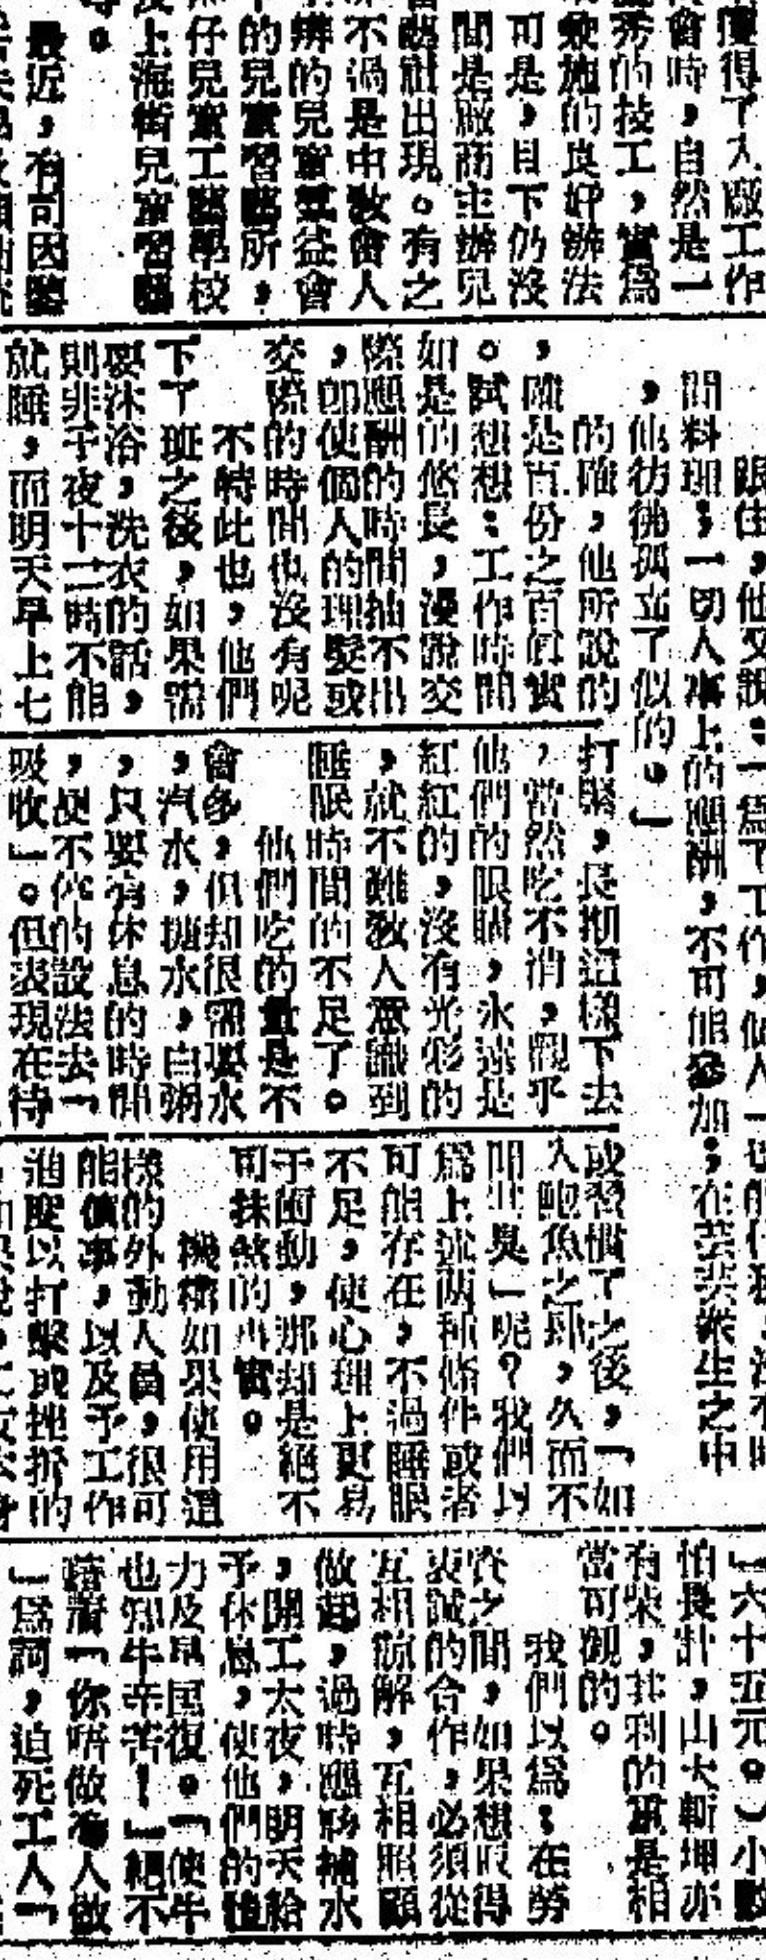 得了入廠工作
會時，自然是一
秀的技工，實爲
施的良好辦法
可是，目下仍沒
間是廠商主辦兒
出現。有之
不過是中敎會人
辦的兒童習藝所，
仔兒童工藝學校
上海街兒童習藝
最近，有司因鑒
跟住，他又說：「爲了工作，個人一切的
間料理，一切人事上的應酬，不可能參加；在芸芸衆生之中
，他彷彿孤立了似的。」
的確，他所說的
，確是百份之百眞實
。試想想：工作時間
如是的悠長，漫說交
際應酬的時間抽不出
，即使個人的理髮或
交際的時間也沒有呢
不特此也，他們
下了班之後，如果需
要沐浴，洗衣的話，
則非子夜十二時不能
就睡，而明天早上七
打緊，長期這樣下去
，當然吃不消，觀乎
他們的眼睛，永遠是
紅紅的，沒有光彩的
，就不難敎人意識到
睡眠時間的不足了。
他們吃的量是不
會多，但却很需要水
，汽水，糖水，白粥
，只要有休息的時間
，便不停的設法去「
吸收」。但表現在待
或習慣了之後，「如
入鮑魚之肆，久而不
聞其臭」呢？我們以
爲上述兩種條件或者
可能存在，不過睡眠
不足，使心理上更易
于衝動，那却是絕不
可抹煞的事實。
機構如果使用這
樣的外勤人員，很可
能僨事，以及予工作
進度以打擊或挫折的
」六十五元。）小數
怕長計，山大斬埋亦
有柴，其利的確是相
當可觀的。
我們以爲：在勞
資之間，如果想取得
衷誠的合作，必須從
互相諒解，互相照顧
做起，過時應該補水
，開工太夜，明天給
予休息，使他們的體
力及早囘復。「使牛
也知牛辛苦！」絕不
藉着「你唔做有人做
」爲詞，迫死工人「